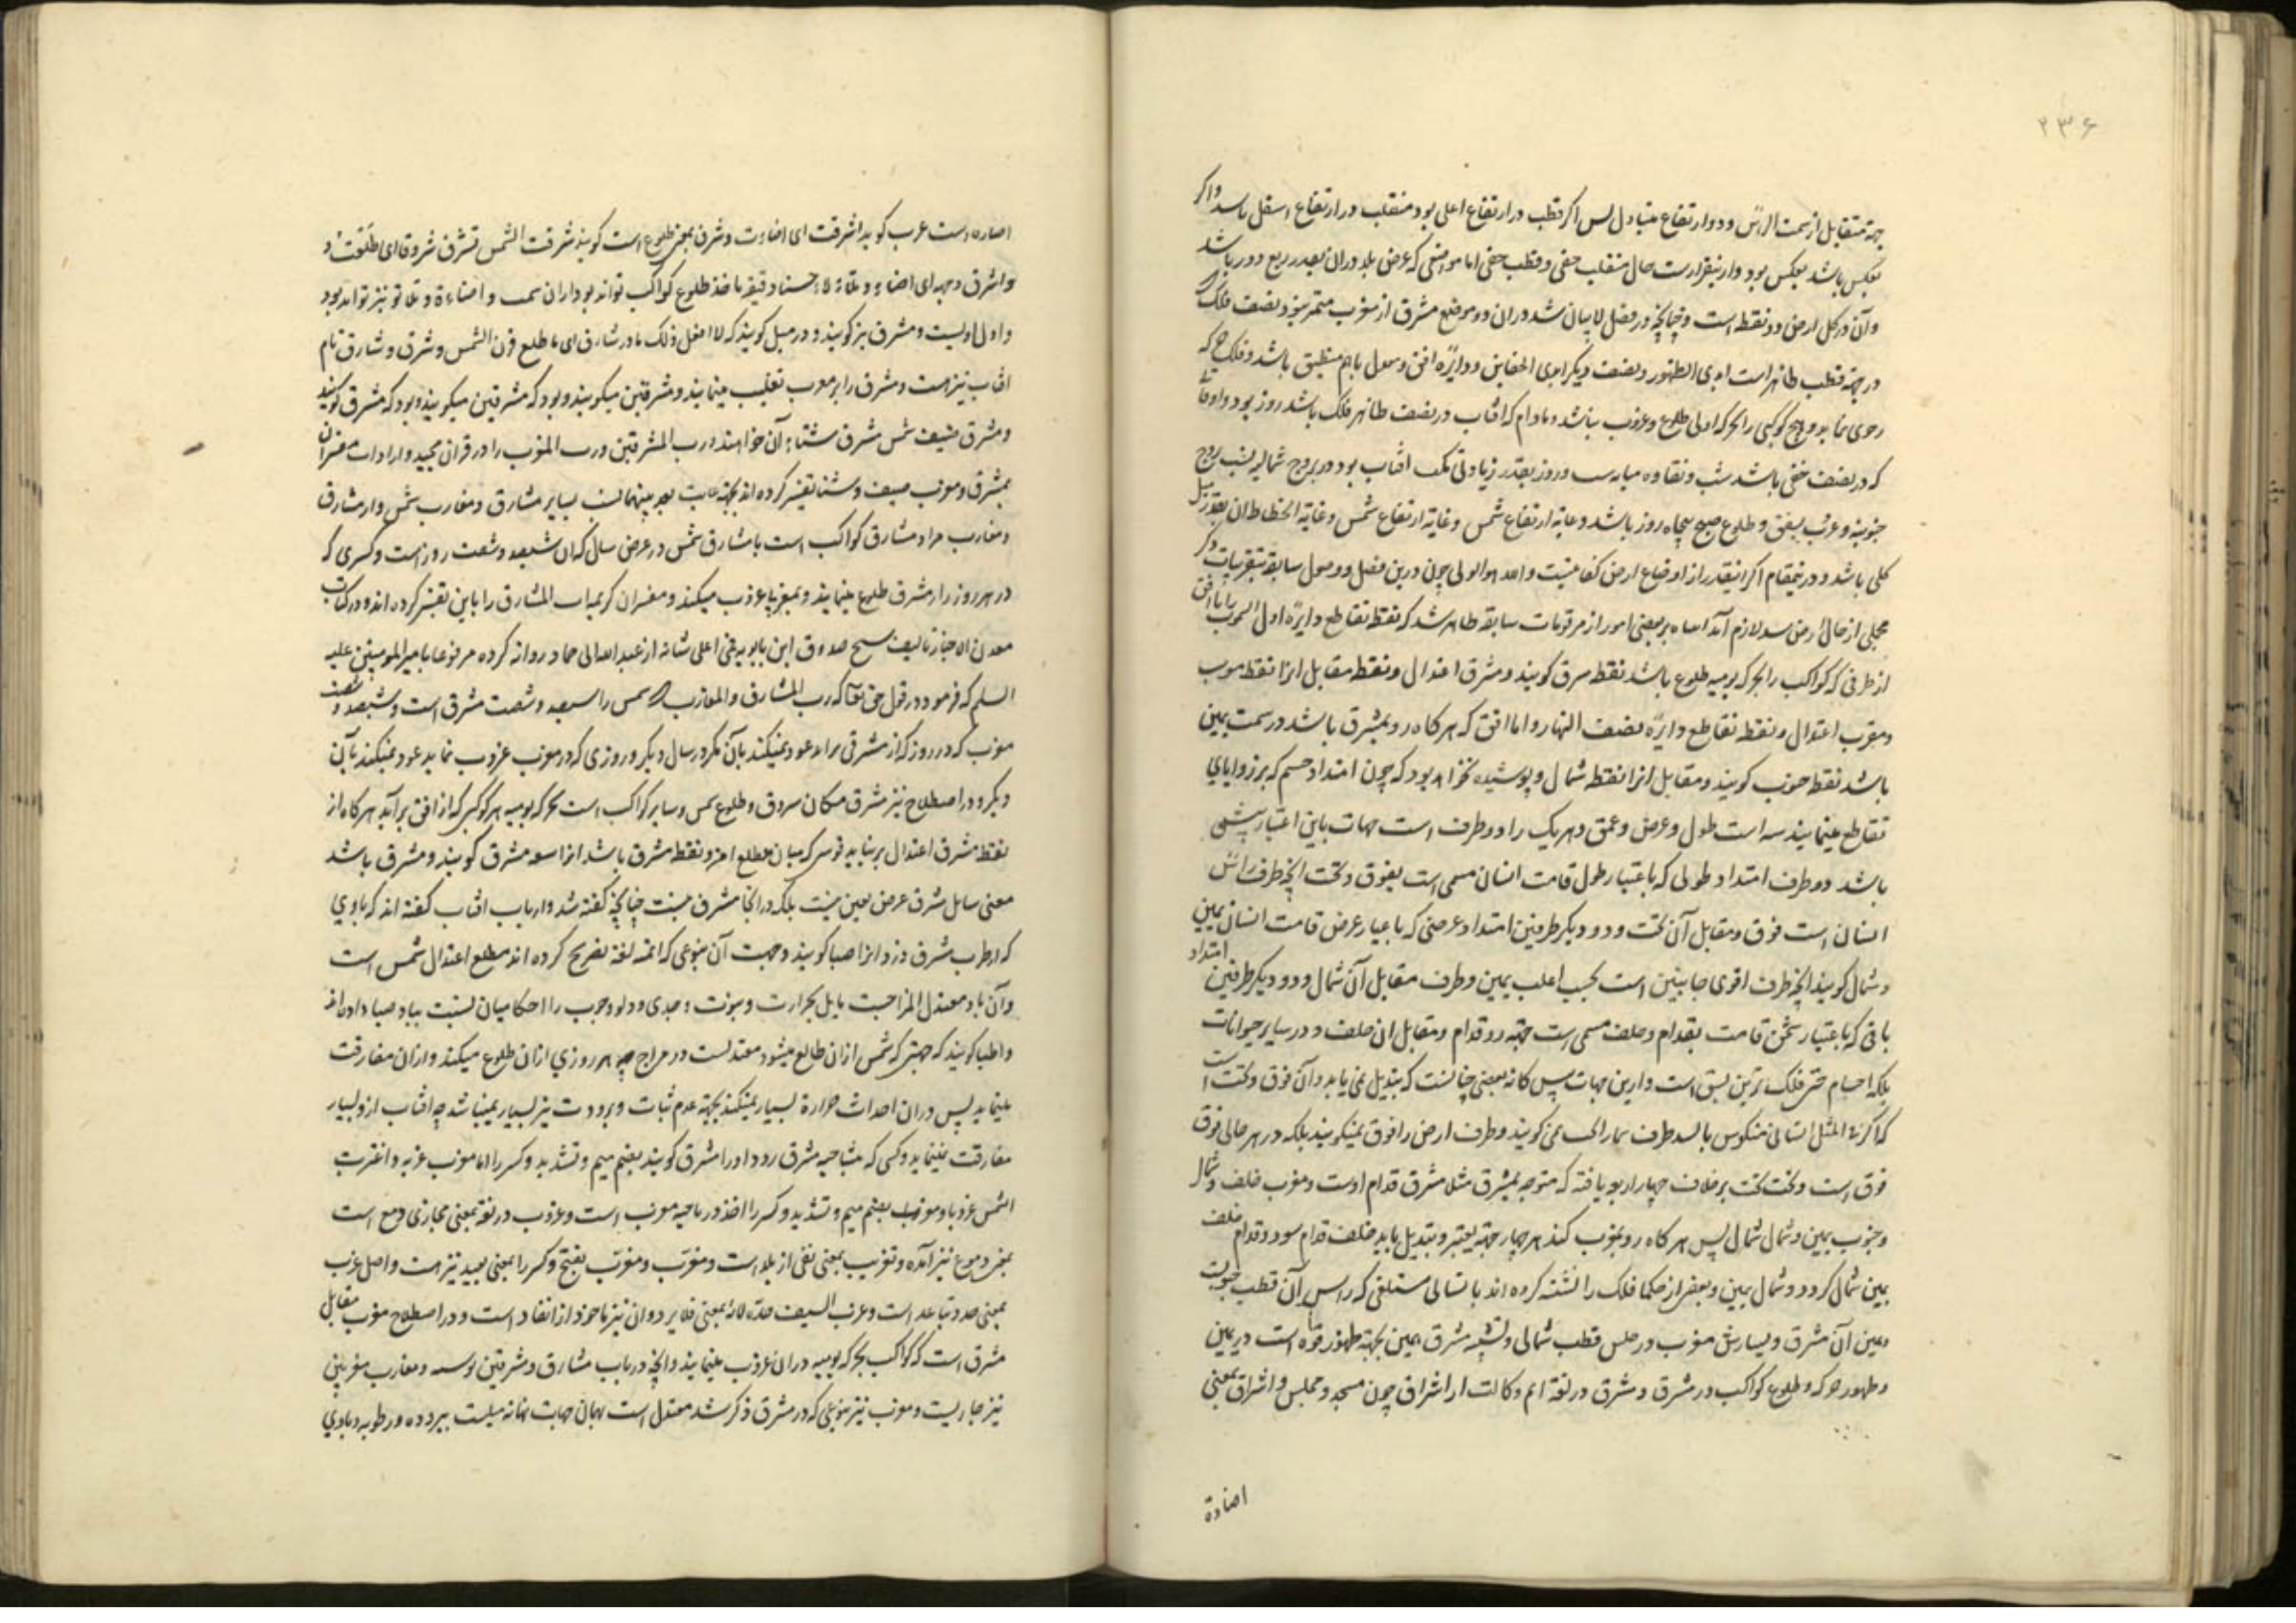 ۲۳۶
جهة متقابل از سمت الراس و دو ارتفاع متبادل پس اگر قطب در ارتفاع اعلی بود منقلب در ارتفاع اسفل باشد و اگر
بعکس باشد بعکس بود و ازینقرارست حال منقلب خفی و قطب خفی اما مواضعی که عرض بلد دران بقدر ربع دور باشد
وآن در کل ارض دو نقطه است و چنانچه در فصل لا بیان شد دران دو موضع مشرق از مغرب متمیز نبود نصف فلک
در جهة قطب ظاهر است ابدی الظهور و نصف دیگر ابدی الخفا بین دو دایرهٔ افق و معدل باهم منطبق باشد و فلک چرخ که
رحوی نماید و هیچ کوکبی را بحرکه اولی طلوع و غروب نباشد و مادام که افتاب در نصف ظاهر فلک باشد روز بود و اوقات
که در نصف خفی باشد شب و تفاوت میانه شب و روز بقدر زیادتی مکث افتاب بود در بروج شمالیه بنسب بروج
جنوبیه و غرب شفق و طلوع صبح پنجاه روز باشد و غایة ارتفاع شمس و غایة انحطاط ان بقدر میل
کلی باشد و درینمقام اگر اینقدر از اوضاع ارض کفایتست و لعد هوالولی چون درین فصل و وصول سابقه بتقریبات ذکر
مجملی از حال ارض شد لازم آمد انتباه بر بعضی امور از مرقومات سابقه ظاهر شد که نقطه تقاطع دایرهٔ اول السموت را با افق
از طرفی که کواکب را بحرکه یومیه طلوع باشد نقطه مشرق گویند و مشرق اعتدال و نقطه مقابل انرا نقطه مغرب
و مغرب اعتدال و نقطه تقاطع دایرهٔ نصف النهار و اما افق که هر کاه رو بمشرق باشد در سمت یمین
باشد نقطه جنوب گویند و مقابل انرا نقطه شمال و پوشیده نخواهد بود که چون امتداد جسم که بر زوایای
تقاطع مینمایند سه است طول و عرض و عمق و هر یک را دو طرف است جهات باین اعتبار شش
باشد دو طرف امتداد طولی که باعتبار طول قامت انسان مسمی است بفوق و تحت انچه طرف راس
انسان است فوق و مقابل آن تحت و دو دیگر طرفین امتداد عرضی که باعتبار عرض قامت انسان یمین
و شمال گویند انچه طرف اقوی جانبین است بحسب اغلب یمین و طرف مقابل آن شمال و دو دیگر طرفین امتداد
باقی که باعتبار ثخن قامت بقدام و خلف مسمی است جهة رو قدام و مقابل ان خلف و در سایر حیوانات
بلکه اجسام حتی فلک برین نسق است و ازین جهات پس کانه بعضی چنانست که تبدیل نمی یابد و آن فوق و تحت است
که اگر فی المثل انسانی منکوس بالسد طرف ما را تحت نمی گویند و طرف ارض را فوق نمیگویند بلکه در هر حالی فوق
فوق است و تحت تحت بر خلاف چهار اربو یافته که متوجه بمشرق مثلا مشرق قدام اوست و مغرب خلف و شمال
و جنوب یمین و شمال شمال پس هر کاه رو بمغرب کند هر چهار جهة تغیر و تبدیل یابد خلف قدام شود و قدام خلف
یمین شمال گردد و شمال یمین و بعضی از حکما فلک را تشبه کرده اند بانسانی مستلقی که راس آن قطب جنوب
و یمین آن مشرق و یسارش مغرب و رجلیش قطب شمالی و تشبیه مشرق بیمین بجهة ظهور قوه است در یمین
و ظهور حرکه و طلوع کواکب در مشرق و مشرق در لغة اسم مکان است از اشراق چون مسجد و مجلس و اشراق بمعنی
اضاءة
اضاءه است عرب گوید اشرقت ای اضاءت و شرق بمعنی طلوع است گویند شرقت الشمس تشرق شروقا ای طلعت و
واشرق وجهه ای اضاء و تلألأ حسنا
واولی اولیست و مشرق نیز گویند و در مثل گویند که لا افعل ذلک ما ذر شارق ای ما طلع قرن الشمس و شرق و شارق نام
افتاب نیز هست و مشرق را بر مغرب تغلیب مینمایند و مشرقین میگویند و بود که مشرقین میگویند و بود که مشرق گویند
و مشرق صیف شمس مشرق شتاء آن خواهند و رب المشرقین و رب المغربین را در قران مجید و ارادات مفسران
بمشرق و مغرب صیف و شتا تفسیر کرده اند بجهة غایت بعد بینهما نسبت بسایر مشارق و مغارب شمس و از مشارق
و مغارب مراد مشارق کواکب است یا مشارق شمس در عرض سال که ان سیصد و شصت روز است و کسری که
در هر روز از مشرقی طلوع مینماید و بمغربی غروب میکند و مفسران کریمه رب المشارق را باین تفسیر کرده اند و در کتاب
معدن الاخبار تالیف شیخ صدوق ابن بابویه قمی اعلی شانه از عبد الله ابی حماد روایة کرده مرفوعا بامیر المومنین علیه
السلم که فرمود در قول حق تعا که رب المشارق والمغارب که شمس را سیصد و شصت مشرق است و سیصد و شصت
مغرب که در روز که از مشرقی براید عود نمیکند بآن مگر در سال دیگر و روزی که در مغرب غروب نماید عود نمیکند بآن
دیگر و در اصطلاح نیز مشرق مکان شروق و طلوع شمس و سایر کواکب است بحرکه یومیه هر کوکبی که از افق برآید هر کاه از
نقطه مشرق اعتدال بر نیاید قوسی که میان مطلع او و نقطه مشرق باشد انرا سعه مشرق گویند و مشرق باشد
معنی سایل مشرق عرض تعین نیست بلکه در انجا مشرق نیست چنانچه گفته شد و ارباب افتاب گفته اند که بادی
که از طرب مشرق وزد انرا صبا گویند و جهت آن بنوعی که ائمه لغة تصریح کرده اند مطلع اعتدال شمس است
وآن باد معتدل المزاجست مایل بحرارت و یبوست و جدی و دلو و حوت را احکامیان نسبت بباد صبا داده اند
و اطبا گویند که جهتی که شمس ازان طالع میشود معتدلست در مزاج چه هر روزی ازان طلوع میکند و ازان مفارقت
مینماید پس دران احداث حرارة بسیار نمیکند بجهة عدم ثبات و برودت نیز بسیار نمیباشد چه افتاب ازو بسیار
مفارقت نمینماید و کسی که بناحیه مشرق رود او را مشرق گویند بضم میم و تشدید و کسر را اما مغرب غربه و اغتربت
الشمس غروبا و مغرب بضم میم و تشدید و کسر را اخذ در ناحیه مغرب است و غروب در لغة بمعنی مجازی وقع است
بمعنی وموع نیز آمده و تغریب بمعنی نفی از بلد است و مغرّب و مغرب بفتح و کسر را بمعنی بعید نیز هست و اصل غرب
بمعنی حد و تباعد است و غرب السیف حدّه لانه بمعنی دوان نیز ماخوذ از انقاد است و در اصطلاح مغرب مقابل
مشرق است که کواکب بحرکه یومیه دران غروب مینمایند و انچه در باب مشارق و مشرقین و سعه و مغارب مغربین
نیز جاریست و مغرب نیز بنوعی که در مشرق ذکر شد معتدل است بهمان جهات نهایة میلست ببرودة و رطوبه و بادی